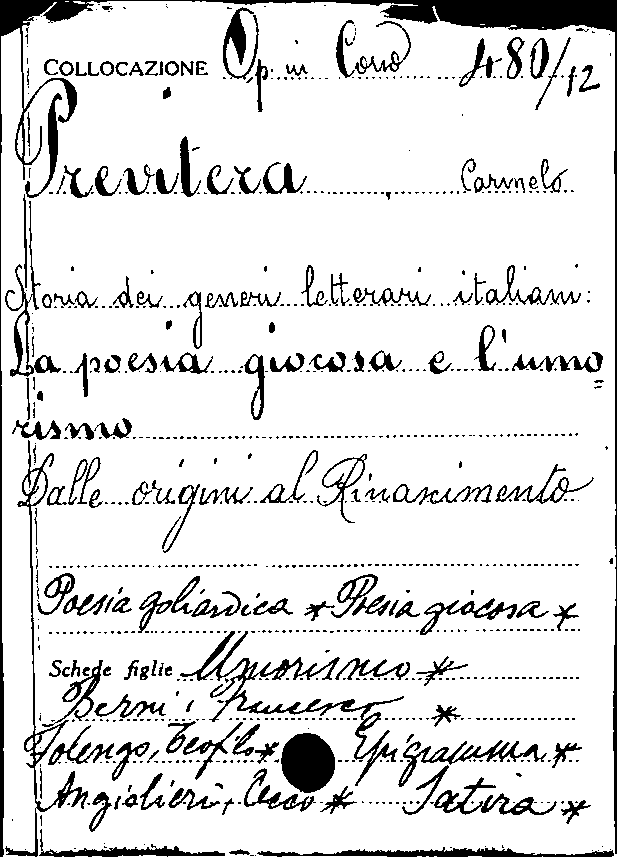 COLLOCAZIONE Op. in Corso 480/12
Previtera, Carmelo
Storia dei generi letterari italiani:
La poesia giocosa e l'umo=
rismo
Dalle origini al Rinascimento
Poesia goliardica * Poesia giocosa *
Schede figlie Umorismo *
Berni, Francesco *
Folengo, Teofilo * Epigramma *
Angiolieri, Cecco * Satira *